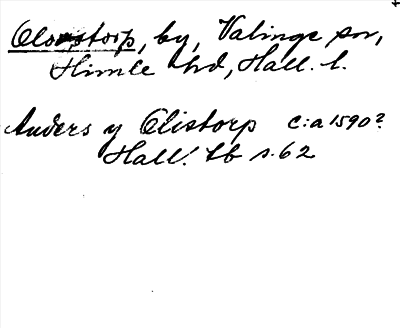 Olofstorp, by, Valinge sn,
Himle hd, Hall. l.
Anders y Olistorp c:a 1590?
Hall. tb s. 62